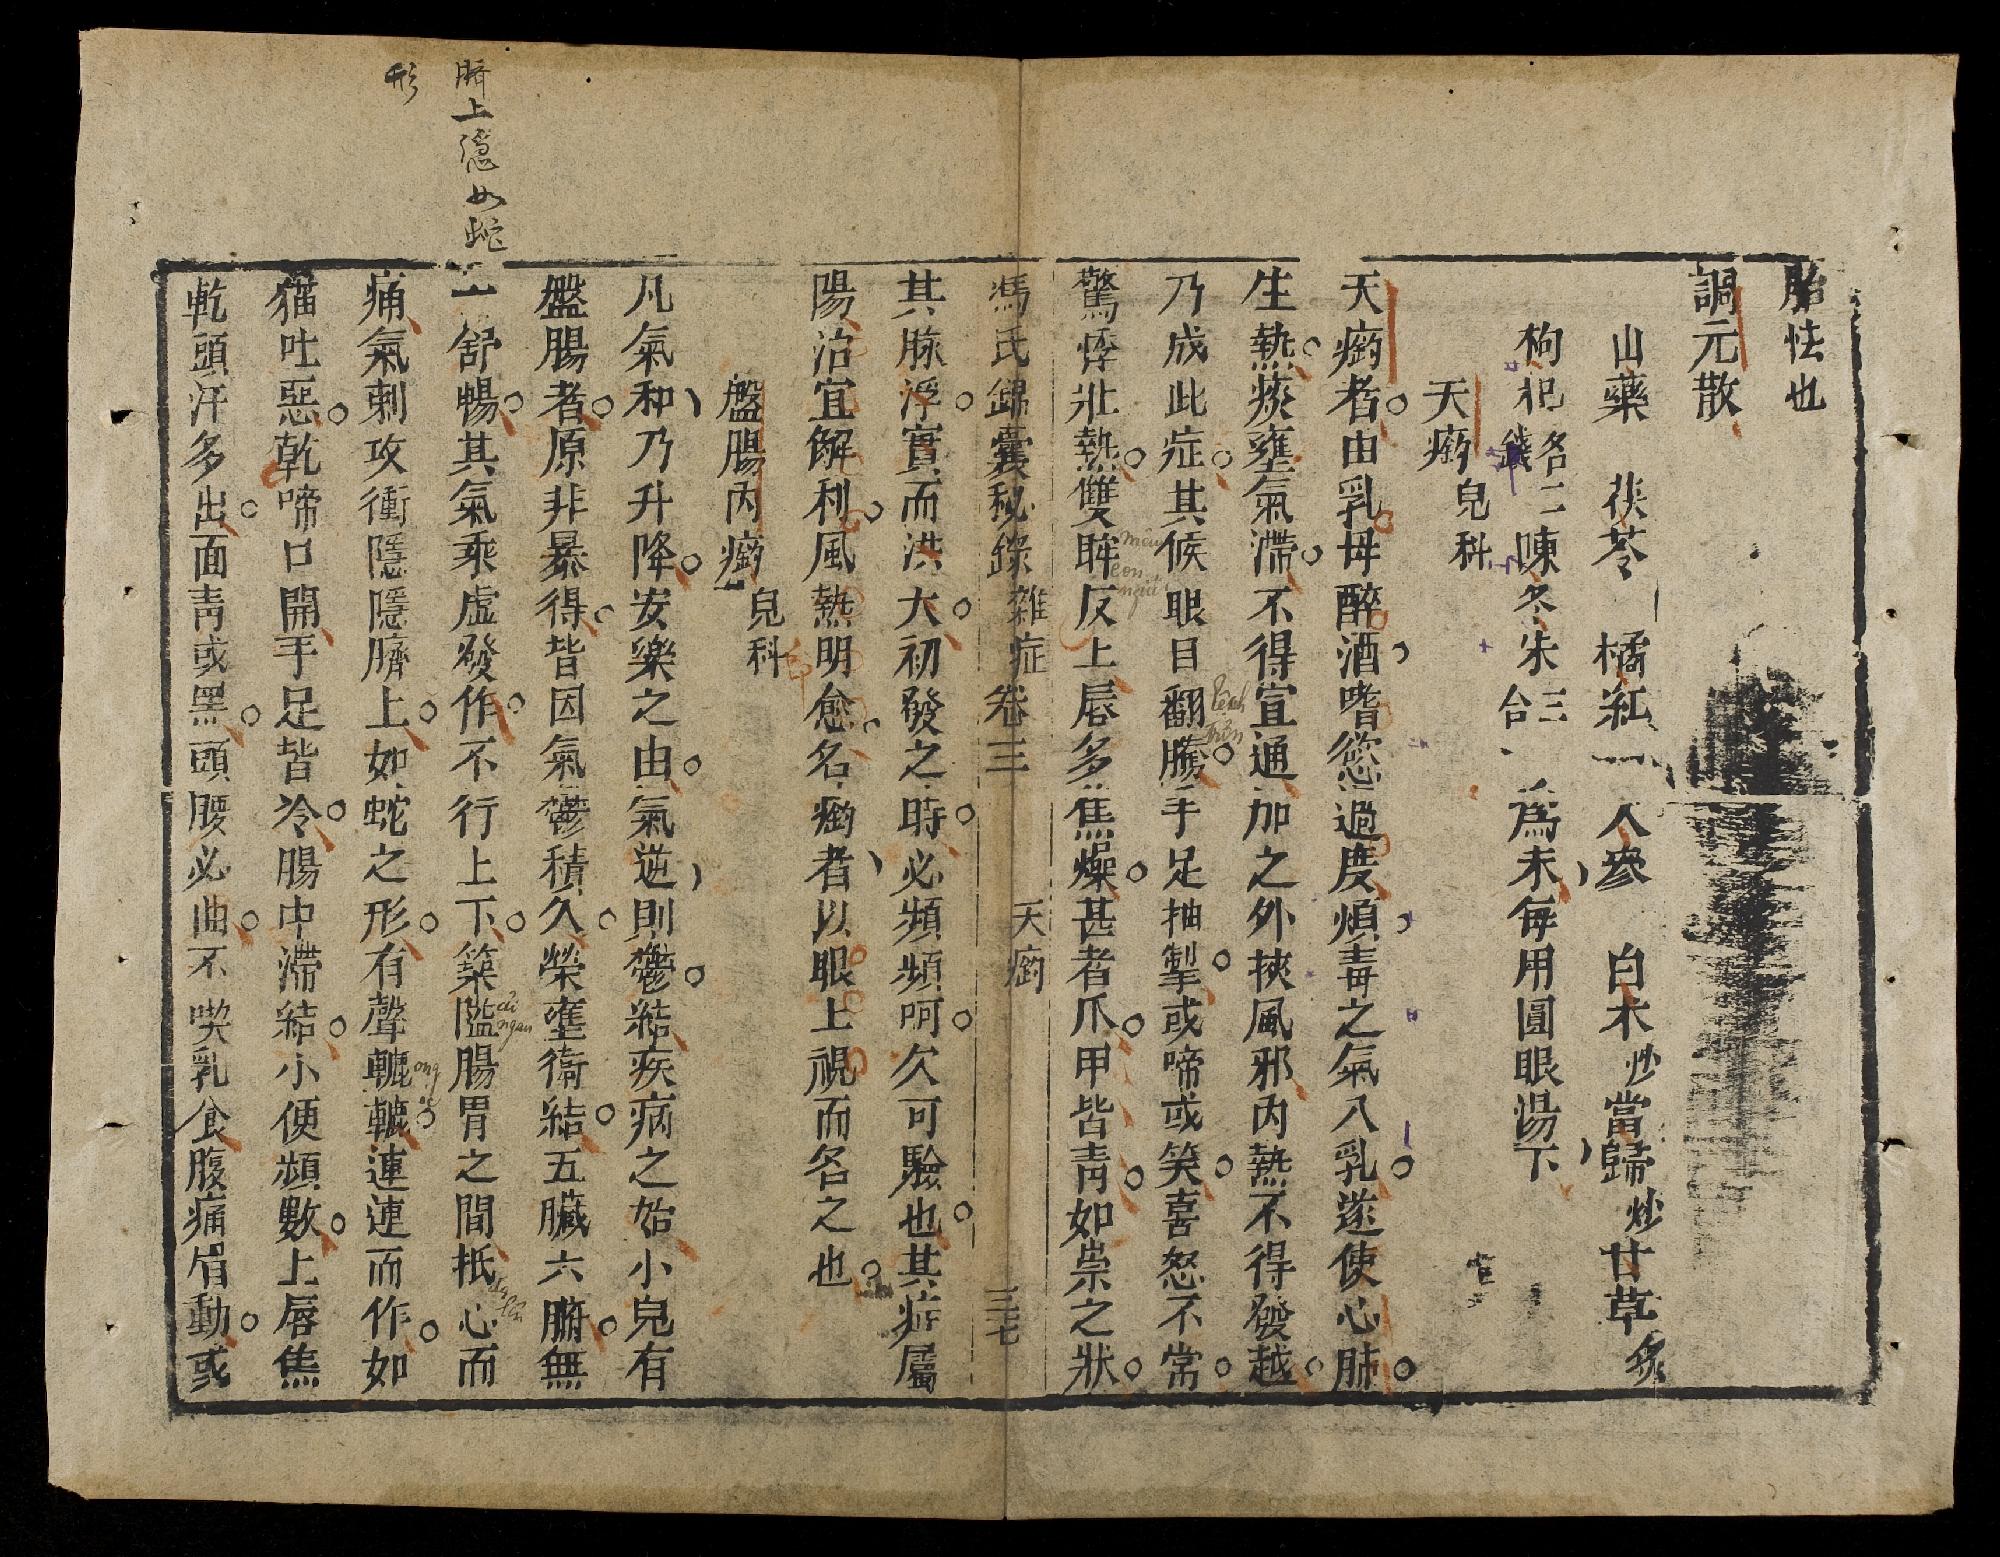 胎怯也
調元散
山藥　茯苓　橘紅　人參　白朮炒當歸炒甘草炙
枸杞各二錢陳冬朱三合　為末每用圓眼湯下
天瘹兒科
天瘹者由乳母醉酒嗜慾過度煩毒之氣入乳遂使心肺
生熱痰壅氣滯不得宣通加之外挾風邪內熱不得發越
乃成此症其候眼目翻騰手足抽掣或啼或笑喜怒不常
驚悸壯熱雙眸反上唇多焦燥甚者爪甲皆青如祟之狀
馮氏錦囊秘錄 雜症 卷三　天瘹　三七
其脉浮實而洪大初發之時必頻頻呵欠可驗也其症屬
陽治宜解利風熱明愈名瘹者以眼上視而名之也
盤腸內瘹兒科
凡氣和乃升降安樂之由氣逆則鬱結疾病之始小兒有
盤腸者原非暴得皆因氣鬱積久榮壅衛結五臟六腑無
一舒暢其氣乘虛發作不行上下築隘腸胃之間抵心而
痛氣刺攻衝隱隱臍上如蛇之形有聲轆轆連連而作如
猫吐惡乾啼口開手足皆冷腸中滯結小便頻數上唇焦
乾頭汗多出面青或黑頭腰必曲不喫乳食腹痛眉動或
臍上隱如蛇
形
mây con ngươi
di ngan
ong